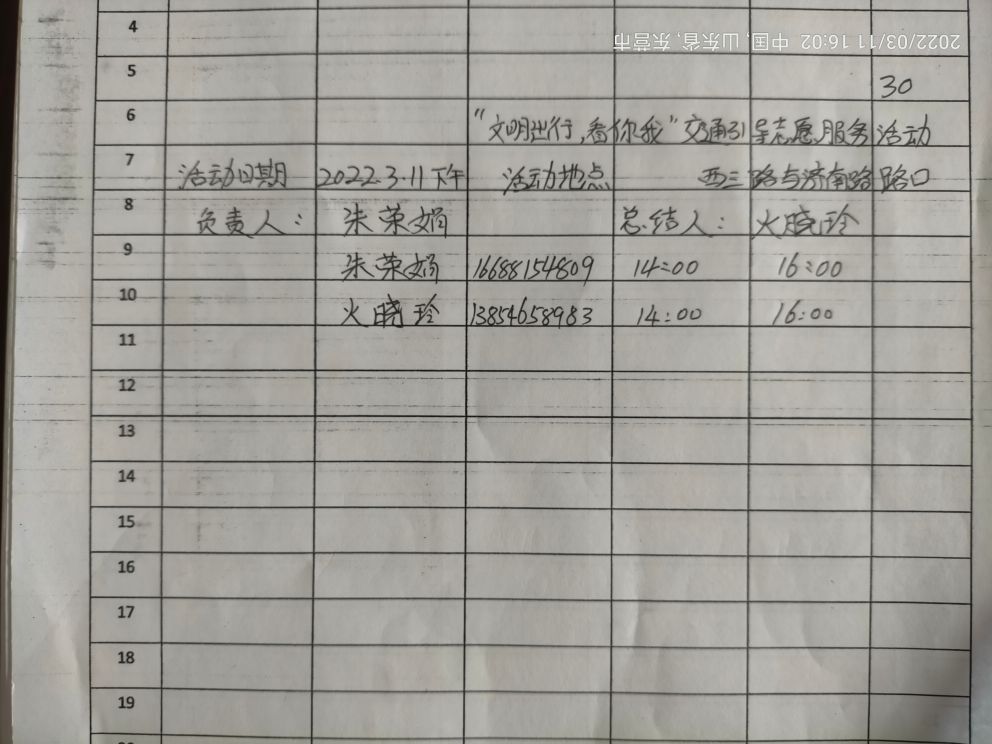 4
2022/03/11 16:02 中国, 山东省, 东营市
5 30
6 "文明出行,看你我"交通引导志愿服务活动
7 活动日期 2022.3.11下午 活动地点 西三路与济南路路口
8 负责人: 朱荣娟 总结人: 火晓玲
9 朱荣娟 16688154809 14:00 16:00
10 火晓玲 13854658983 14:00 16:00
11
12
13
14
15
16
17
18
19